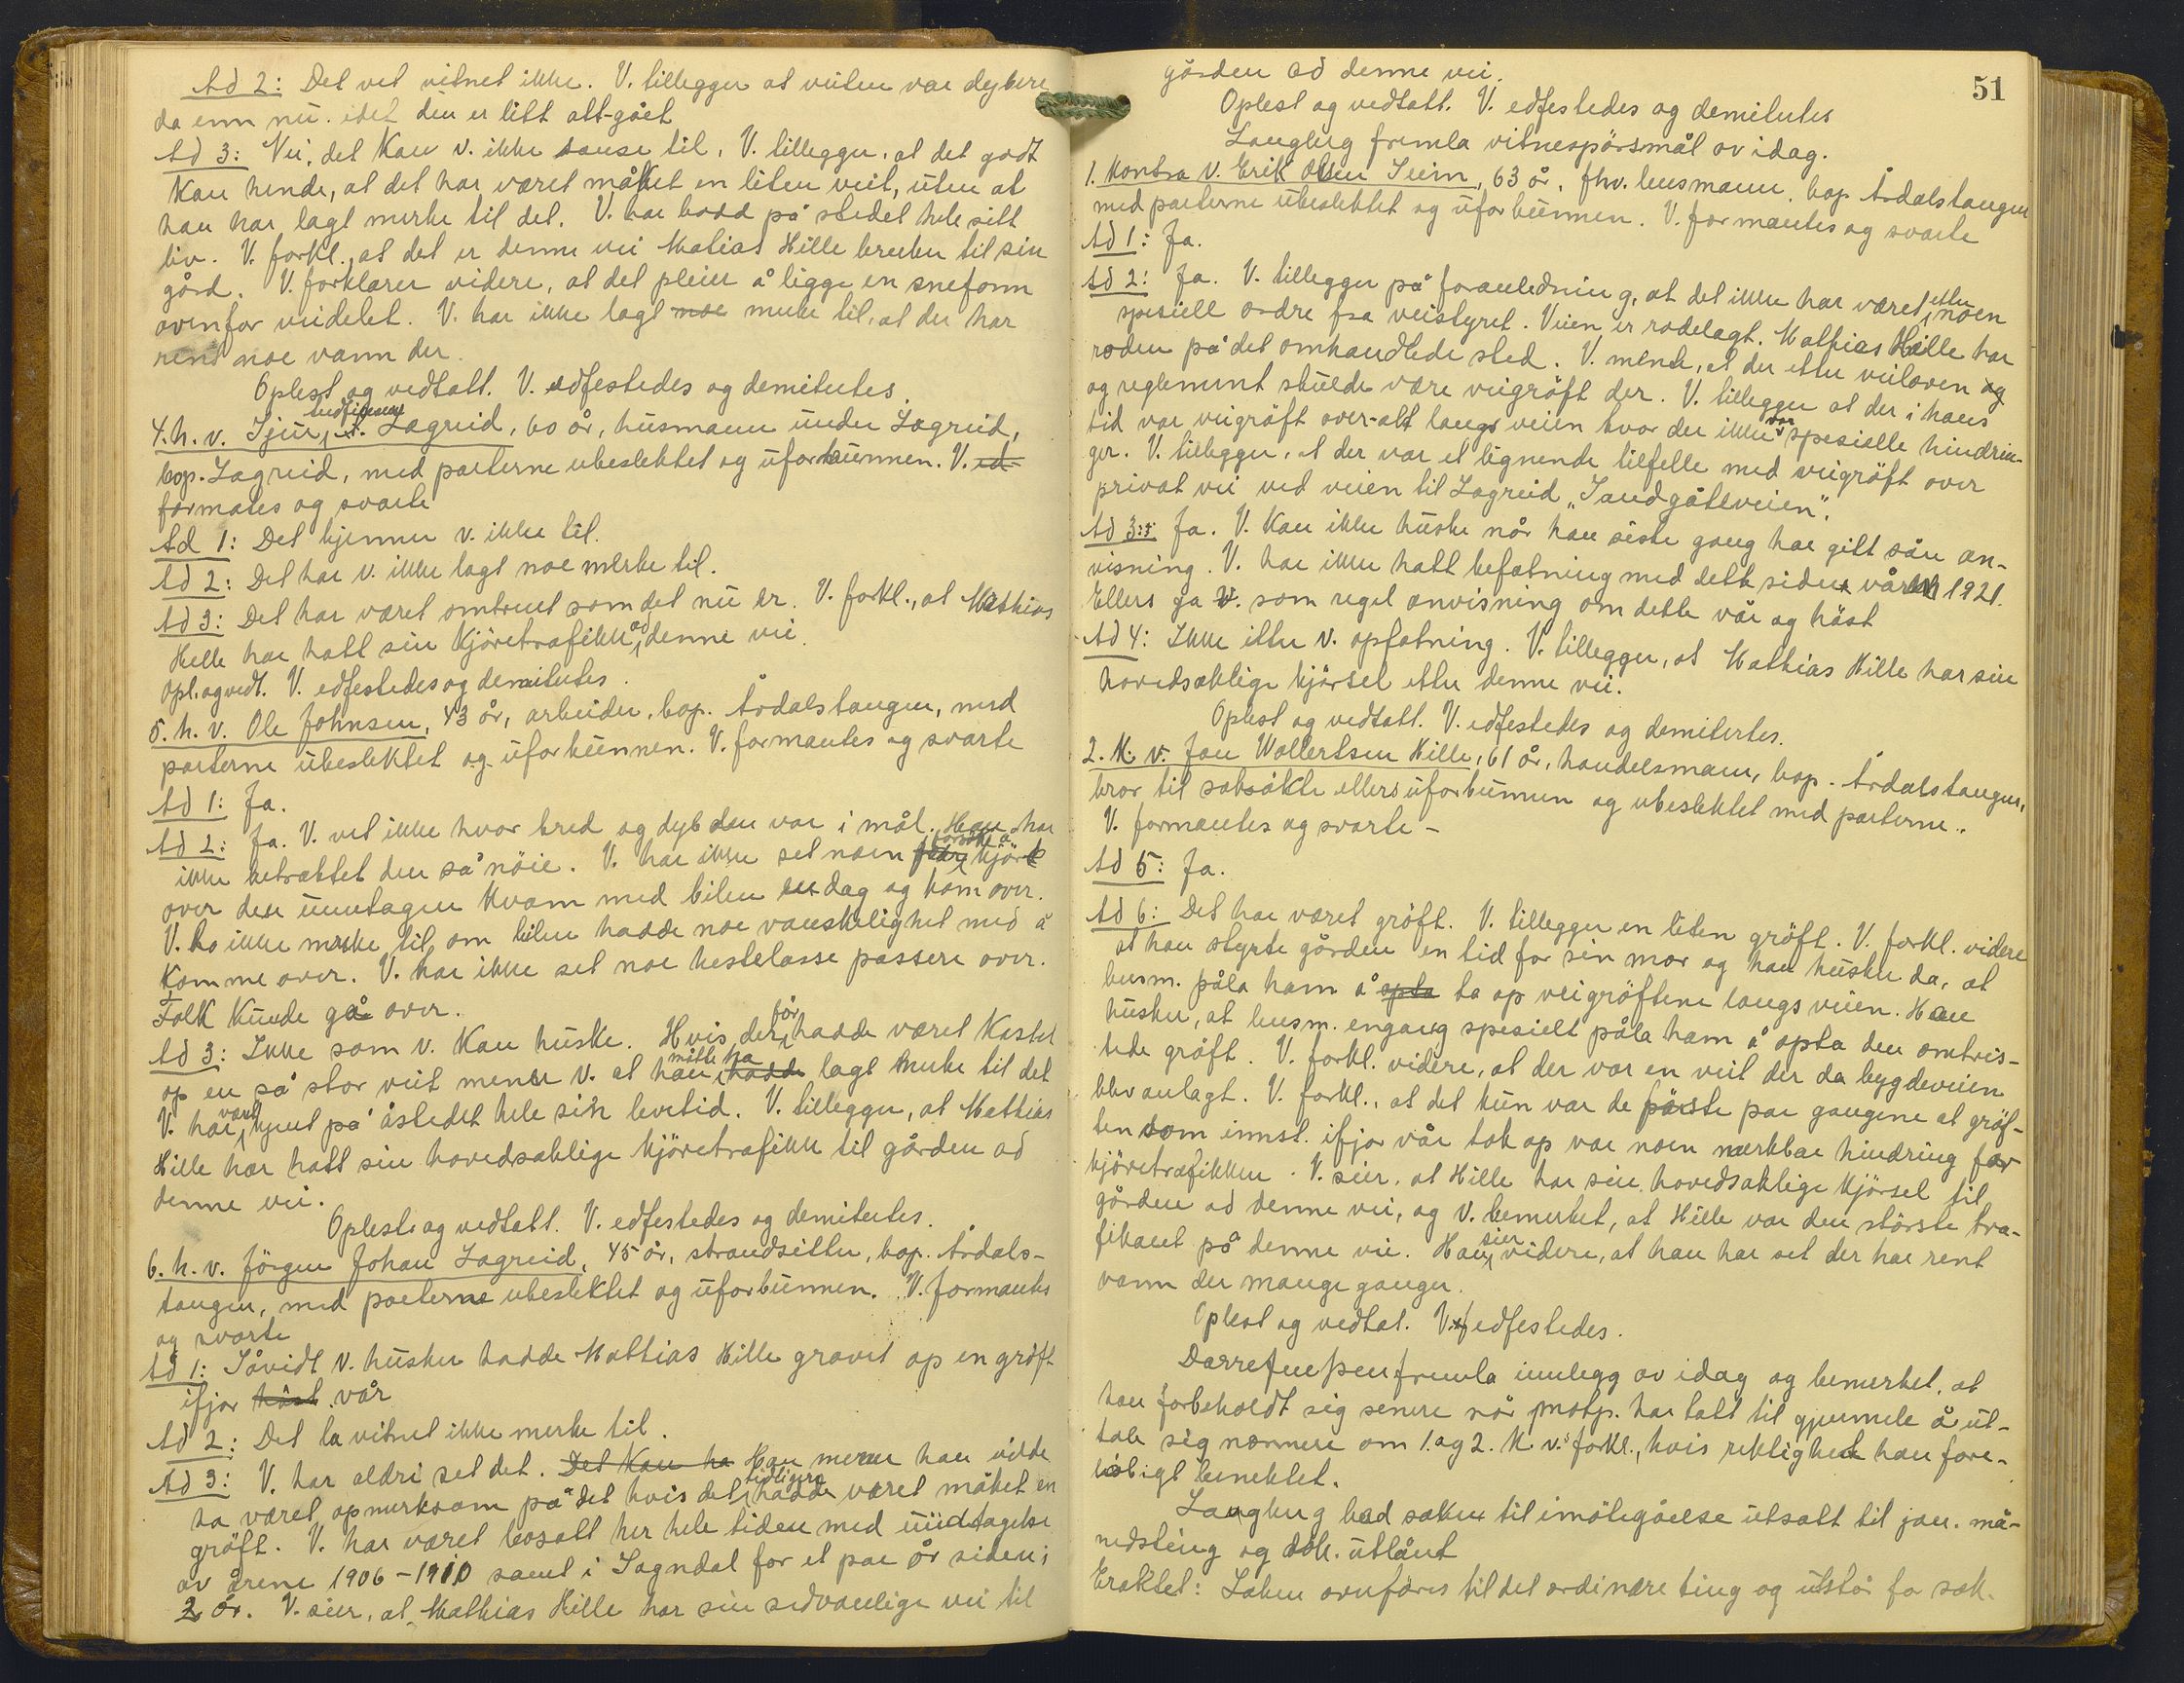 Ad 2: Det vet vitnet ikke. V. tillegger at veiten var dypere
da enn nu. idet den er litt att-gået
Ad 3: Nei, det kan v. ikke sanse til. V. tillegger, at det godt
kan hende, at det har været måket en liten veit, uten at
han har lagt merke til det. V. har bodd på stedet hele sitt
liv. V. forkl., at det er denne vei Matias Hille bruker til sin
gård. V. forklarer videre, at det pleier å ligge en snefonn
ovenfor veidelet. V. har ikke lagt noe merke til, at der har
rent noe vann der.
Oplest og vedtatt. V. edfestedes og demitertes.
4. h. v. Sjur Lægreid, 60 år, husmann under Lægreid,
bop. Lægreid, med parterne ubeslektet og uforbunnen. V. ed-
formantes og svarte
Ad 1: Det kjenner v. ikke til.
Ad 2: Det har v. ikke lagt noe merke til.
Ad 3: Det har været omtrent som det nu er. V. forkl., at Mathias
Hille har hatt sin kjöretrafikk ad denne vei.
Opl. og vedt. V. edfestedes og demitertes.
5. h. v. Ole Johnsen, 43 år, arbeider, bop. Årdalstangen, med
parterne ubeslektet og uforbunnen. V. formantes og svarte
Ad 1: Ja.
Ad 2: Ja. V. vet ikke hvor bred og dyb den var i mål. Han har
ikke betraktet den så nöie. V. har ikke set noen forsöke å kjöre
over den unntagen Kvam med bilen en dag og kom over.
V. la ikke merke til, om bilen hadde noe vanskelighet med å
komme over. V. har ikke set noe hestelasse passere over.
Folk kunde gå over.
Ad 3: Ikke som v. kan huske. Hvis der för hadde været kastet
op en så stor veit mener v. at han måtte ha hadde lagt merke til det
V. har vært kjent på åstedet hele sin levetid. V. tillegger, at Mathias
Hille har hatt sin hovedsaklige kjöretrafikk til gården ad
denne vei.
Oplest og vedtatt. V. edfestedes og demitertes.
6. h. v. Jörgen Johan Lægreid, 45 år, strandsitter, bop. Årdals-
tangen, med parterne ubeslektet og uforbunnen. V. formantes
og svarte
Ad 1: Såvidt v. husker hadde Mattias Hille gravet op en gröft
ifjor höst vår
Ad 2: Det la vitnet ikke merke til.
Ad 3: V. har aldri set det. Det kan ha Han mener han vilde
ha været opmerksom på det hvis det tidligere hadde været måket en
gröft. V. har været bosatt her hele tiden med undtagelse
av årene 1906-1910 samt i Sogndal for et par år siden i
2 år. V. sier, at Mathias Hille har sin sedvanlige vei til
51
gården ad denne vei.
Oplest og vedtatt. V. edfestedes og demitertes
Langberg fremla vitnespörsmål av idag.
1. kontra v. Erik Olsen Seim, 63 år, fhv. lensmann, bop Årdalstangen
med parterne ubeslektet og uforbunnen. V. formantes og svarte
Ad 1: Ja.
Ad 2: Ja. V. tillegger på foranledning, at det ikke har været etter noen
spesiell ordre fra veistyret. Veien er rodelagt. Mathias Hille har
roden på det omhandlede sted. V. mente, at der etter veiloven og
og reglement skulde være veigröft der. V. tillegger at der i hans
tid var veigröft over-alt langs veien hvor der ikke var spesielle hindrin-
ger. V. tillegger, at der var et lignende tilfelle med veigröft over
privat vei ved veien til Lægreid "Sandgåteveien".
Ad 3: Ja. V. kan ikke huske når han siste gang har gitt sån an-
visning. V. har ikke hatt befatning med dette siden våren 1921.
Ellers ga v. som regel anvisning om dette vår og höst
Ad 4: Ikke etter v. opfatning. V. tillegger, at Mathias Hille har sin
hovedsaklige kjörsel etter denne vei.
Oplest og vedtatt. V. edfestedes og demitertes.
2. K. v. Jan Wollertsen Hille, 61 år, handelsmann, bop. Årdalstangen,
bror til saksökte ellers uforbunnen og ubeslektet med parterne.
V. formantes og svarte –
Ad 5: Ja.
Ad 6: Det har været gröft. V. tillegger en liten gröft. V. forkl. videre
at han styrte gården en tid for sin mor og han husker da, at
lensm. påla ham å opta ta op veigröftene langs veien. Han
husker, at lensm. engang spesielt påla ham å opta den omtvis-
tede gröft. V. forkl. videre, at der var en veit der da bygdeveien
blev anlagt. V. forkl., at det kun var de förste par gangene at gröf-
ten som innst. ifjor vår tok op var noen merkbar hindring for
kjöretrafikken. V. sier, at Hille har sin hovedsaklige kjörsel til
gården ad denne vei, og v. bemerket, at Hille var den störste tra-
fikant på denne vei. Han sier videre, at han har set der har rent
vann der mange ganger.
Oplest og vedtat. V. edfestedes.
fremla innlegg av idag og bemerket, at
han forbeholdt sig senere når motp. har tatt til gjenmele å ut-
tale sig nærmere om 1. og 2. K. v.s forkl., hvis riktighet han fore-
löbigt benektet.
Langberg bad saken til imötegåelse utsatt til jan. må-
nedsting og dok. utlånt
Eraktet: Saken overföres til det ordinære ting og utstår fo sak.